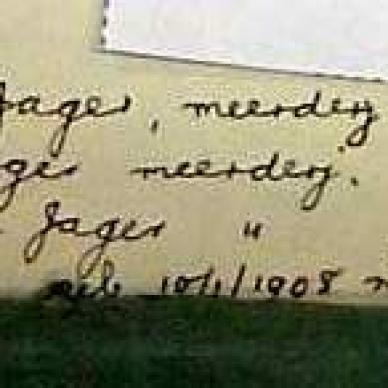 Jager, meerderj
ger meerderj.
Jager "
geb 10/1/1908